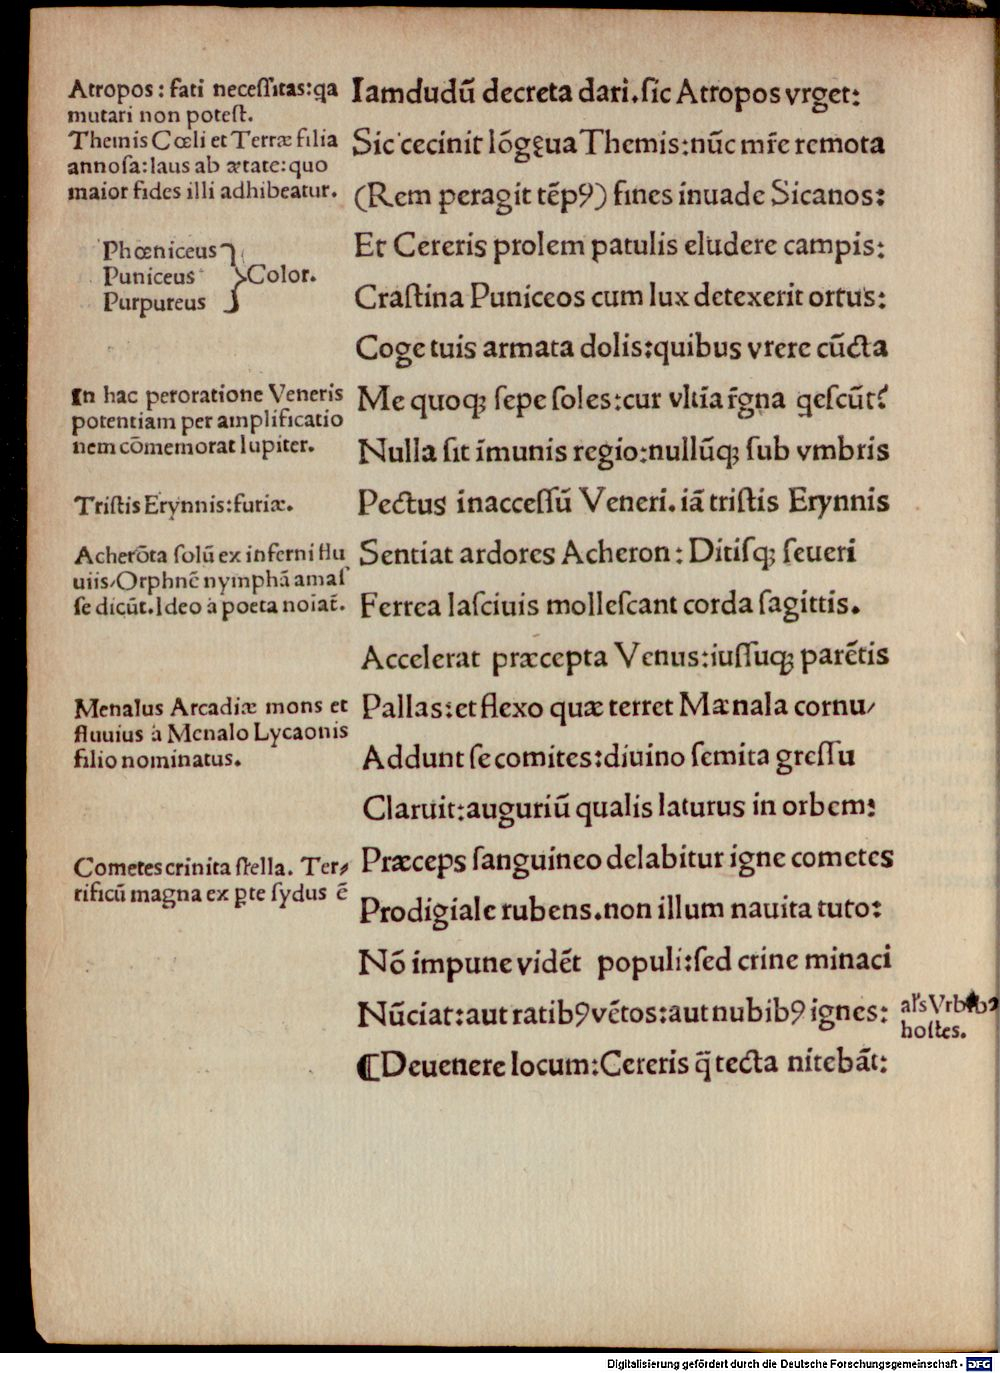 Atropos: fati necessitas: qa
mutari non potest.
Themis Cœli et Terræ filia
annosa: laus ab ætate: quo
maior fides illi adhibeatur.
Phœniceus
Puniceus } Color.
Purpureus
In hac peroratione Veneris
potentiam per amplificatio
nem cōmemorat Iupiter.
Tristis Erynnis: furiæ.
Acherōta solū ex inferni flu
uiis/Orphnē nymphā amas
se dicūt. Ideo a poeta noiāt.
Menalus Arcadiæ mons et
fluuius a Menalo Lycaonis
filio nominatus.
Cometes crinita stella. Ter⸗
rificū magna ex ꝑte sydus ē
Iamdudū decreta dari. sic Atropos vrget:
Sic cecinit lōgęua Themis: nūc mr̄e remota
(Rem peragit tēpꝰ) fines inuade Sicanos:
Et Cereris prolem patulis eludere campis:
Crastina Puniceos cum lux detexerit ortus:
Coge tuis armata dolis: quibus vrere cūcta
Me quoqꝫ sepe soles: cur vltīa r̄gna qescūt?
Nulla sit īmunis regio: nullūqꝫ sub vmbris
Pectus inaccessū Veneri. iā tristis Erynnis
Sentiat ardores Acheron: Ditisqꝫ seueri
Ferrea lasciuis mollescant corda sagittis.
Accelerat præcepta Venus: iussuqꝫ parētis
Pallas: et flexo quæ terret Mænala cornu/
Addunt se comites: diuino semita gressu
Claruit: auguriū qualis laturus in orbem:
Præceps sanguineo delabitur igne cometes
Prodigiale rubens. non illum nauita tuto:
Nō impune vidēt populi: sed crine minaci
Nūciat: aut ratibꝰ vētos: aut nubibꝰ ignes:
al's Vrbibꝰ
hostes.
¶Deuenere locum: Cereris q̄ tecta nitebāt:
Digitalisierung gefördert durch die Deutsche Forschungsgemeinschaft - DFG